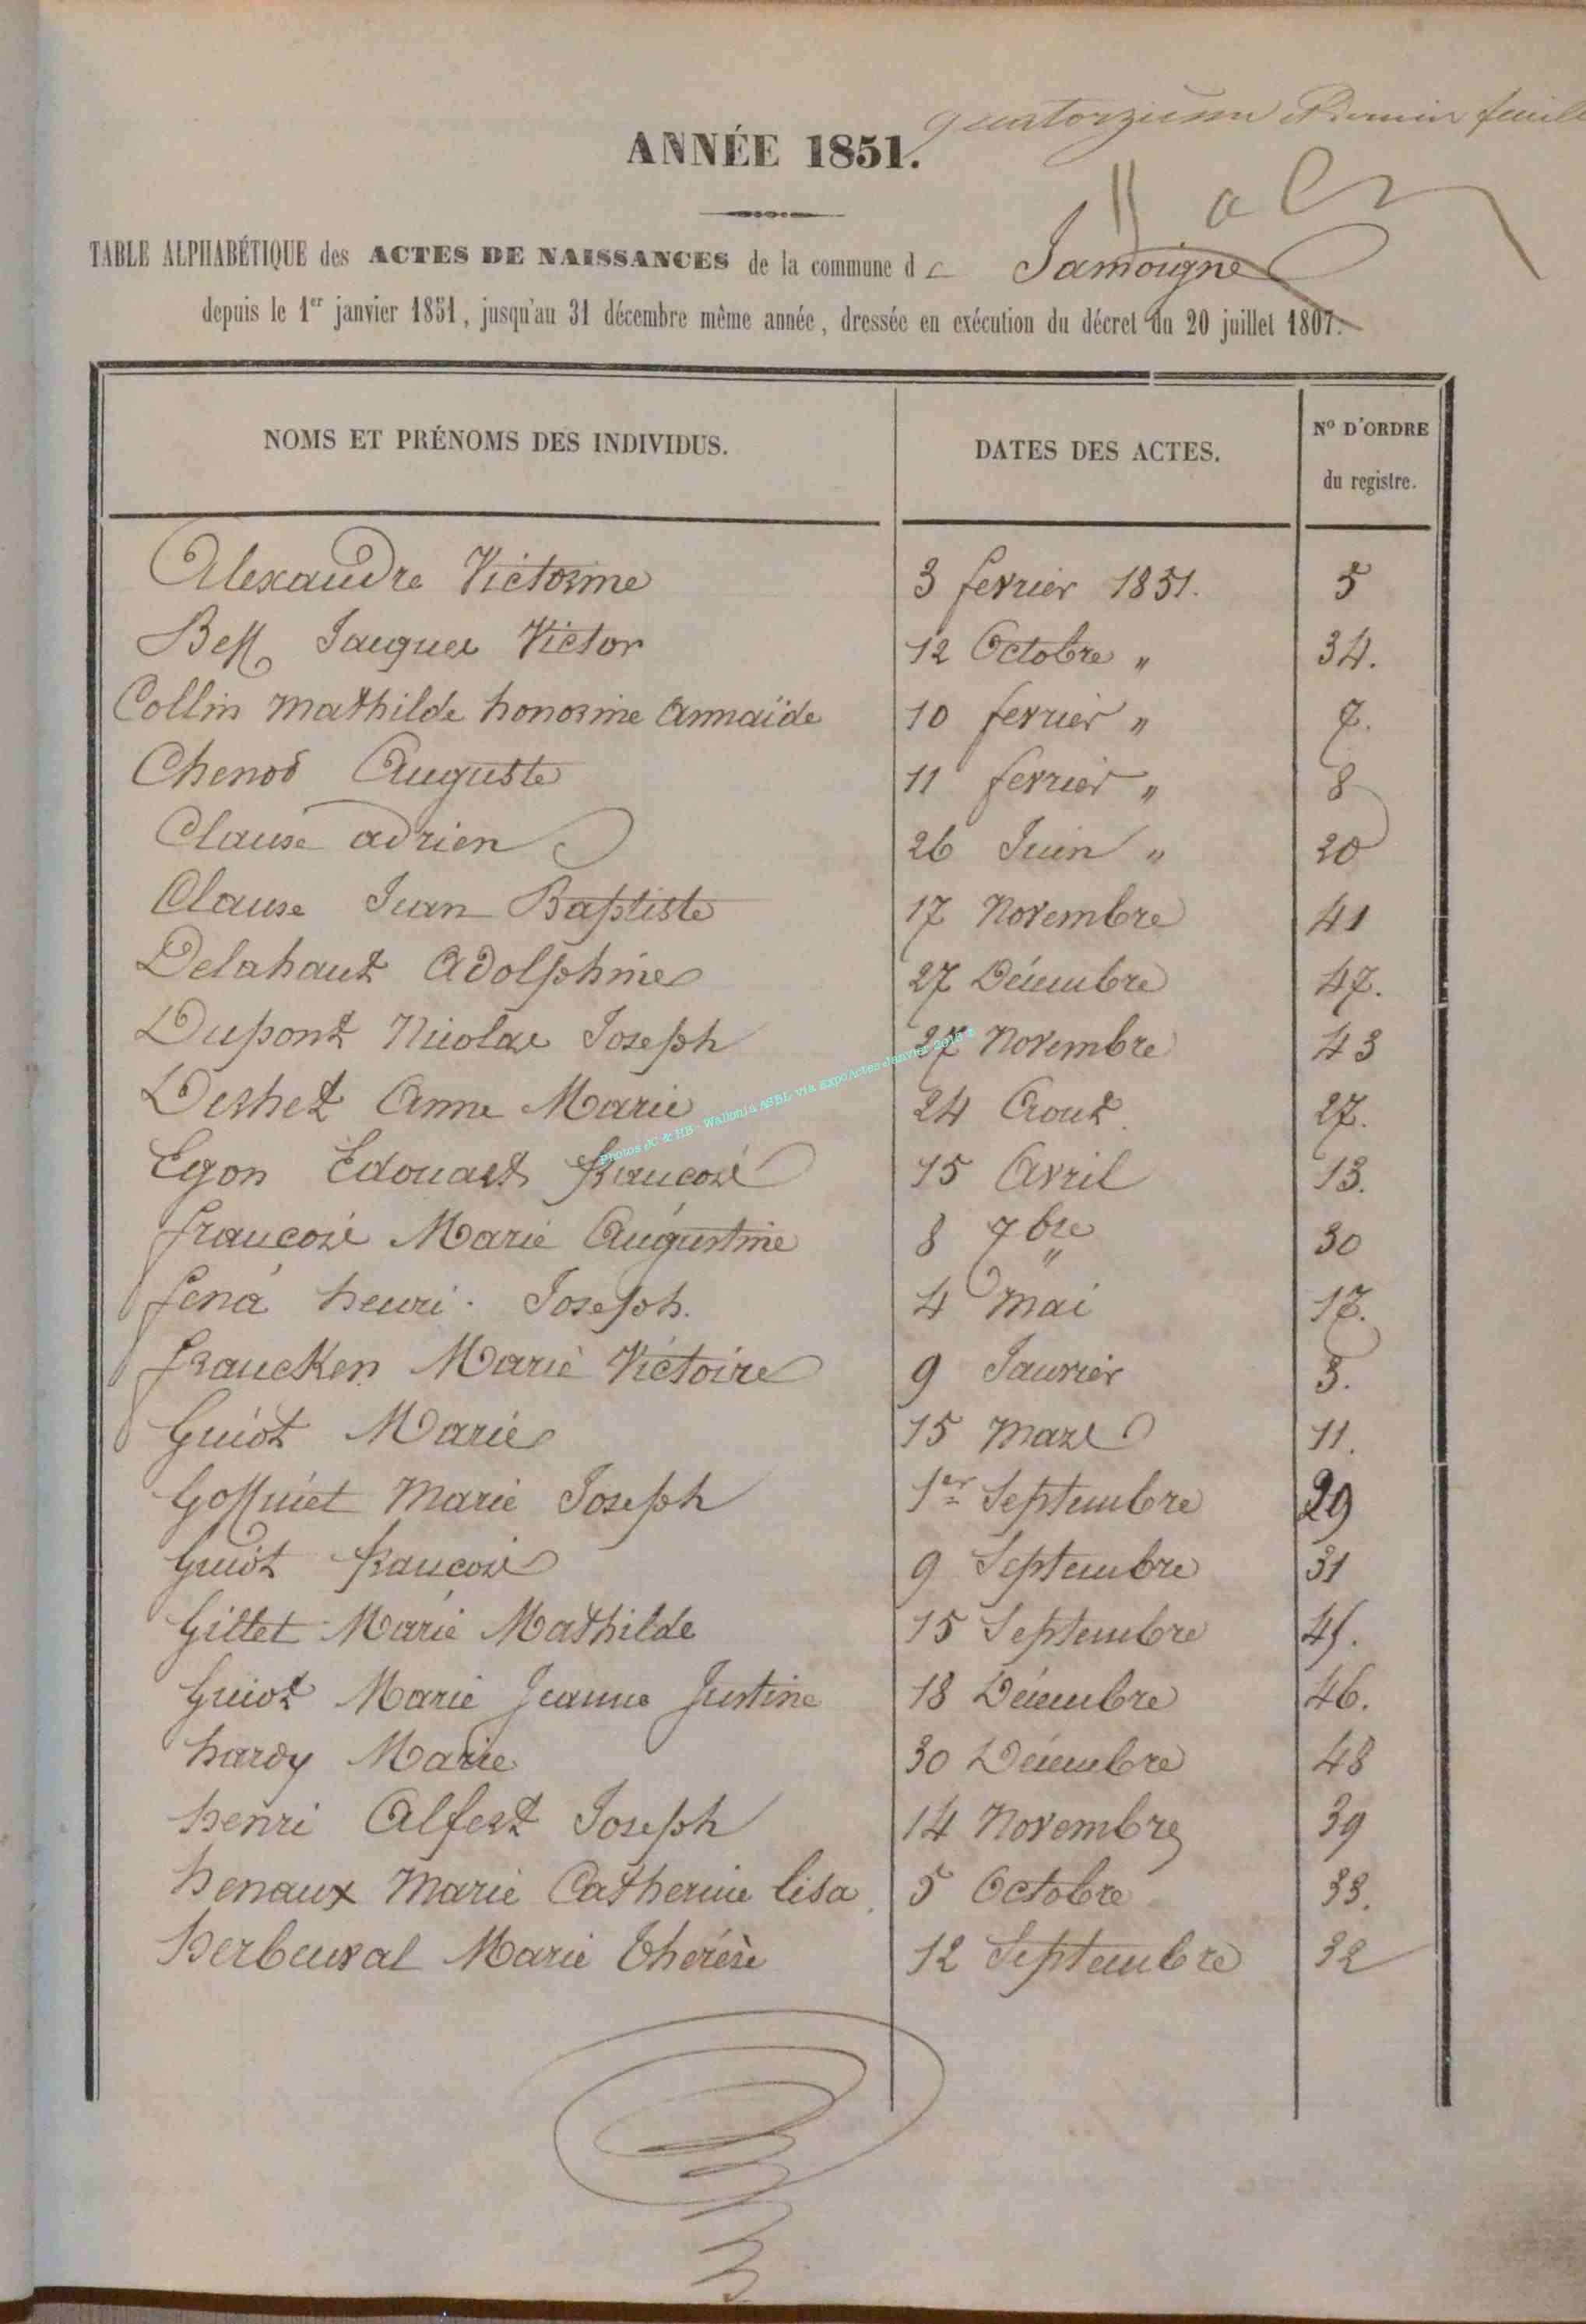 quatorzième & Dernier feuille
ANNÉE 1851.
TABLE ALPHABÉTIQUE des ACTES DE NAISSANCES de la commune de Jamoigne
depuis le 1er janvier 1851, jusqu'au 31 décembre même année, dressée en exécution du décret du 20 juillet 1807.
NOMS ET PRÉNOMS DES INDIVIDUS. DATES DES ACTES. No D'ORDRE du registre.
Alexandre Victorine 3 fevrier 1851. 5
Bess Jacques Victor 12 Octobre " 34.
Collin Mathilde honorine Annaïde 10 fevrier " 7.
Chenod Auguste 11 fevrier " 8
Clause adrien 26 Juin " 20
Clause Jean Baptiste 17 Novembre 41
Delahaut Adolphine 27 Décembre 47.
Dupont Nicolas Joseph 27 Novembre 43
Dershet Anne Marie 24 Aout 27.
Egon Edouard françois 15 Avril 13.
françois Marie Augustine 8 7bre " 30
fena henri. Joseph. 4 Mai 17.
francken Marie Victoire 9 Janvier 3.
Guiot Marie 15 Mars 11.
Goffinet Marie Joseph 1er Septembre 29
Guiot françois 9 Septembre 31
Gillet Marie Mathilde 15 Septembre 45.
Guiot Marie Jeanne Justine 18 Décembre 46.
hardy Marie 30 Décembre 48
henri Alfert Joseph 14 Novembre 39
henaux Marie Catherine lisa 5 Octobre 33.
herbeuval Marie Thérèse 12 Septembre 32
Photos JC & HB - Wallonia ASBL via ExpoActes Janvier 2013